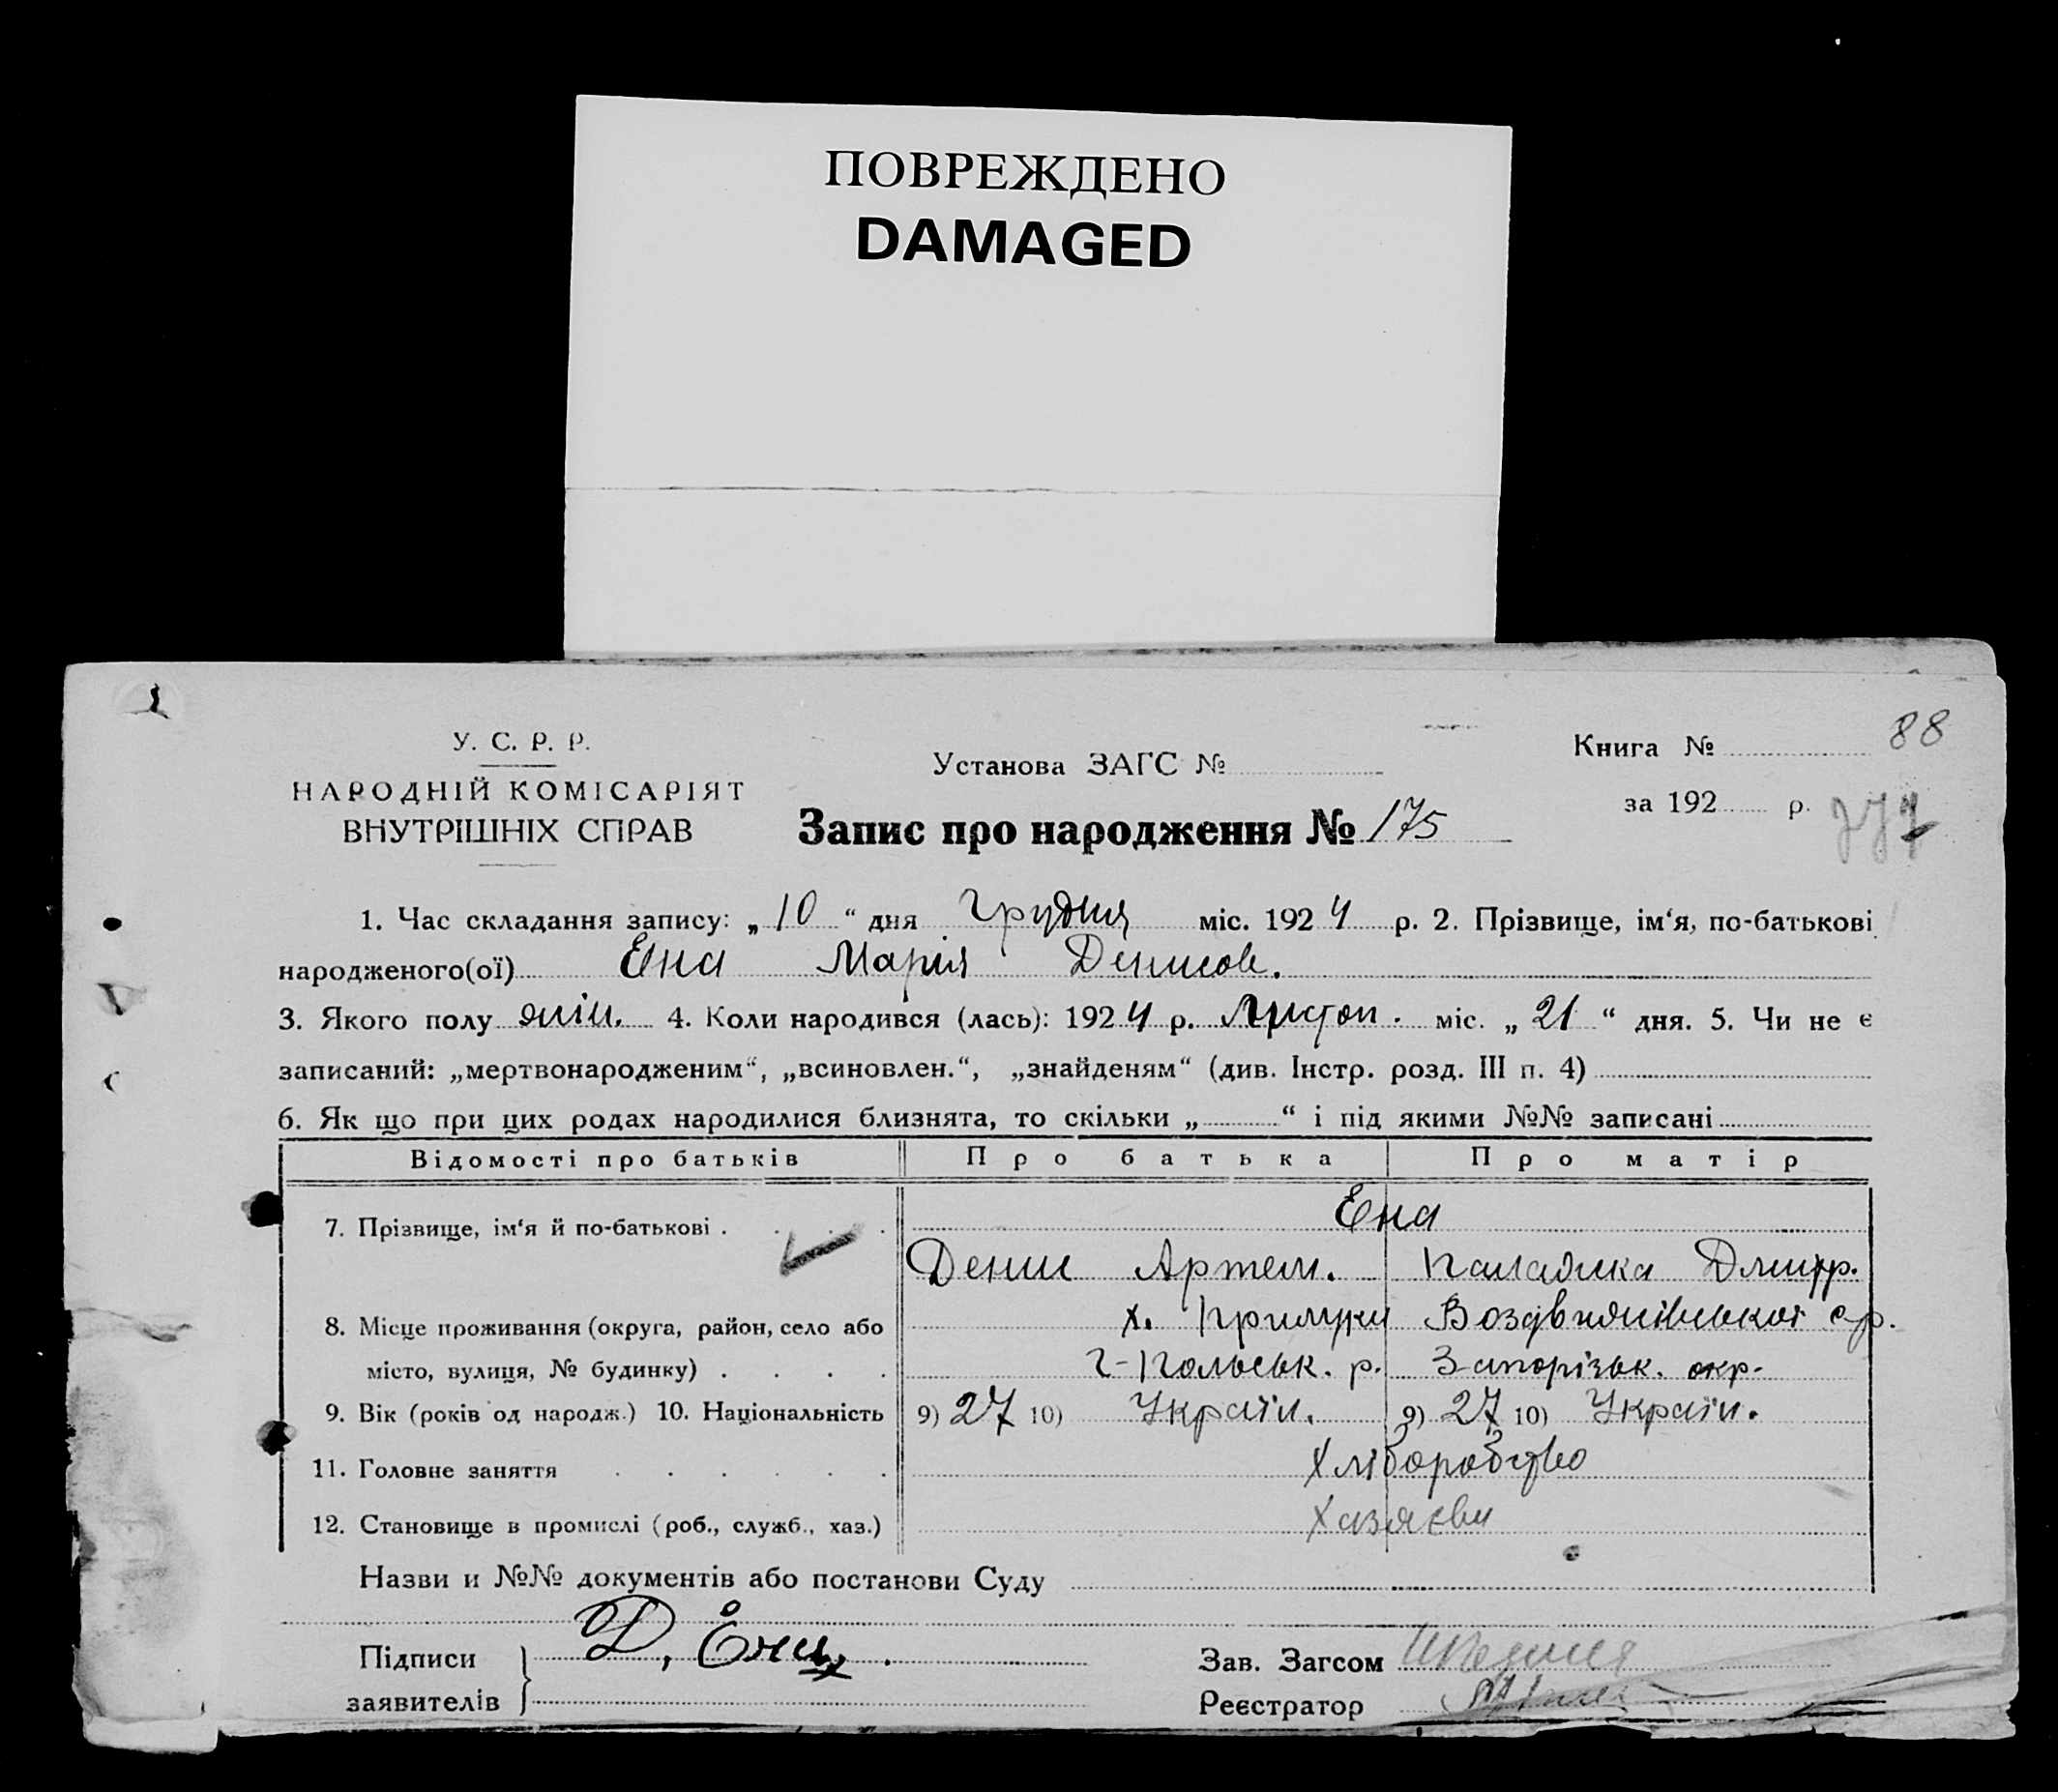 ПОВРЕЖДЕНО
DAMAGED
88
У. С. Р. Р.
НАРОДНІЙ КОМІСАРІЯТ
ВНУТРІШНІХ СПРАВ
Установа ЗАГС №
Запис про народження № 175
Книга №
за 192 р.
1. Час складання запису: „10“ дня Грудня міс. 1924 р. 2. Прізвище, ім‘я, по-батькові
народженого(ої) Ена Марія Денисов.
3. Якого полу жін. 4. Коли народився (лась): 1924 р. Листоп. міс. „21“ дня. 5. Чи не є
записаний: „мертвонародженим“, „всиновлен.“, „знайденям“ (див. Інстр. розд. III п. 4)
6. Як що при цих родах народилися близнята, то скільки „ “ і під якими №№ записані
Відомості про батьків Про батька Про матір
7. Прізвище, ім‘я й по-батькові . . . . Ена
Денис Артем. Палажка Дмитр.
8. Місце проживання (округа, район, село або х. Воздвижівської ср.
місто, вулиця, № будинку) . . . . Г-Польськ. р. Запорізьк. окр.
9. Вік (років од народж.) 10. Національність 9) 27 10) Україн. 9) 27 10) Україн.
11. Головне заняття . . . . . . Хліборобство
12. Становище в промислі (роб., служб., хаз.) Хазяєви
Назви и №№ документів або постанови Суду
Підписи Д. Ена.
заявителів
Зав. Загсом
Реєстратор